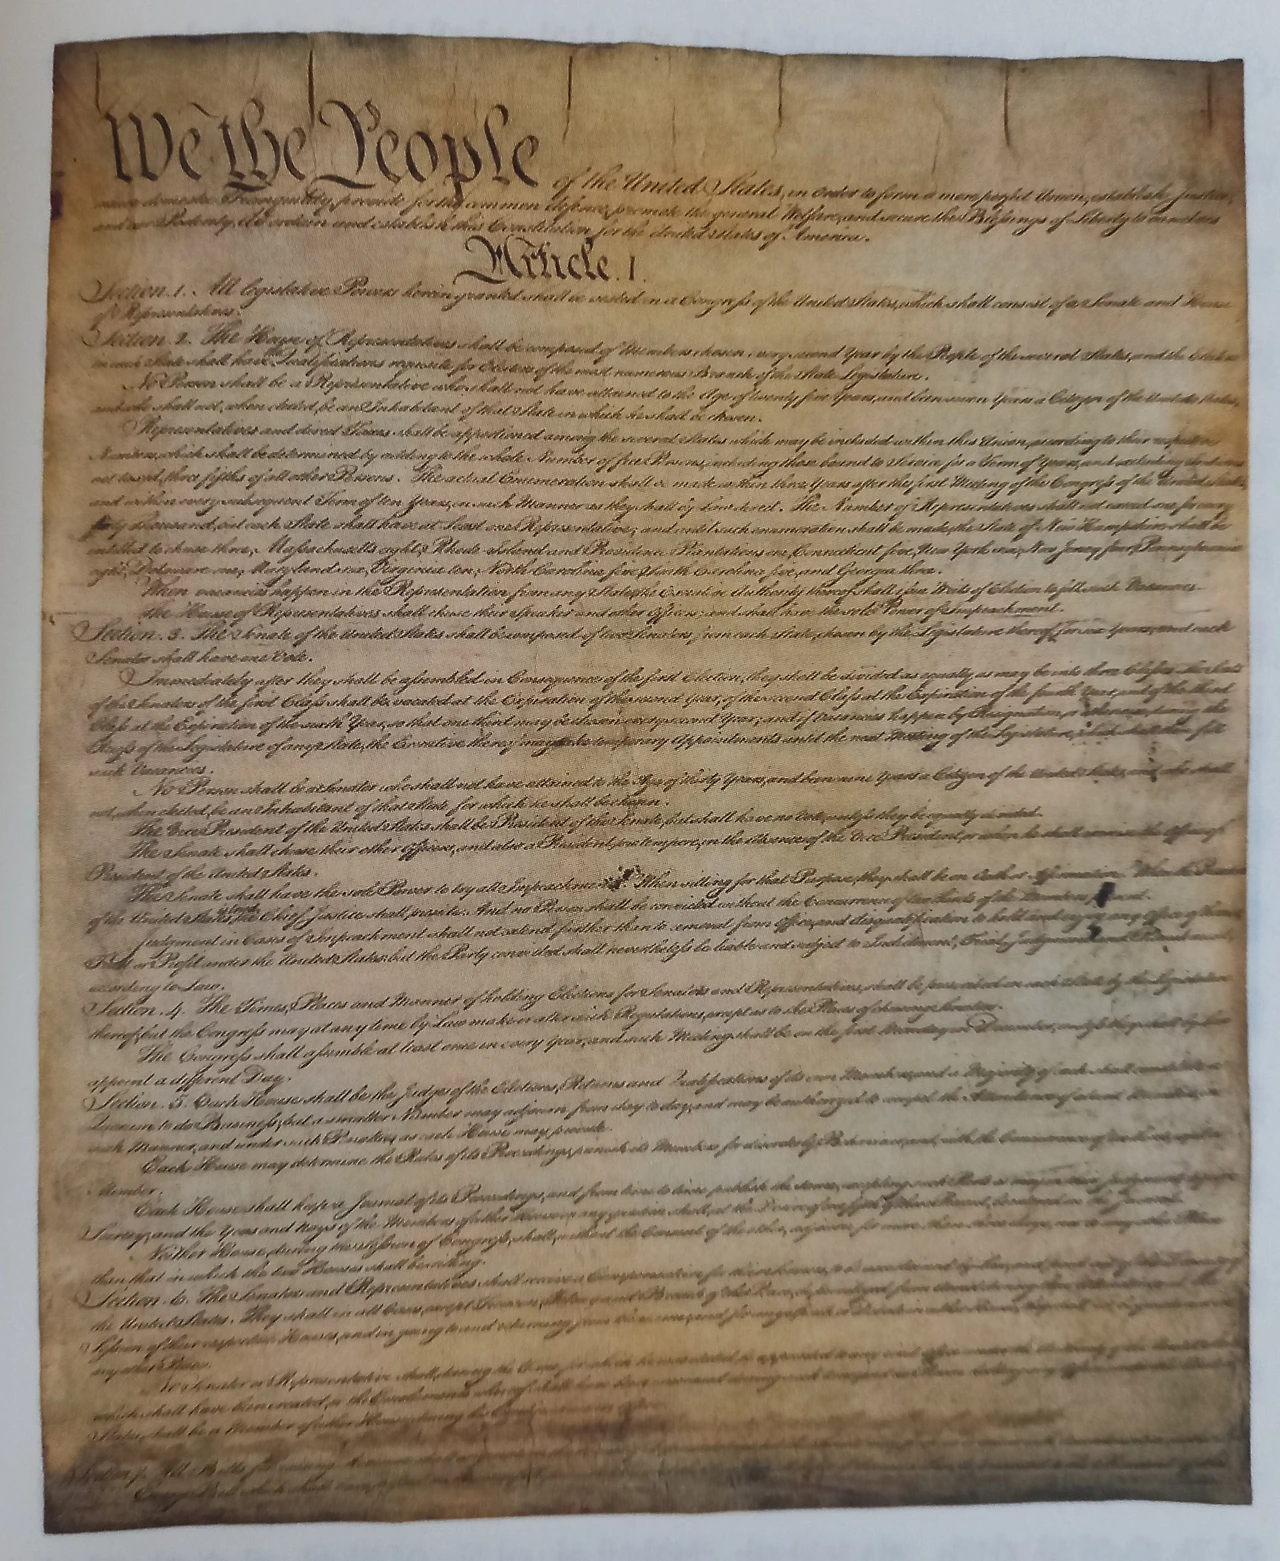 We the People of the United States, in Order to form a more perfect Union, establish Justice,
insure domestic Tranquility, provide for the common defence, promote the general Welfare, and secure the Blessings of Liberty to ourselves
and our Posterity, do ordain and establish this Constitution for the United States of America.
Article. I.
Section. 1. All legislative Powers herein granted shall be vested in a Congress of the United States, which shall consist of a Senate and House
of Representatives.
Section. 2. The House of Representatives shall be composed of Members chosen every second Year by the People of the several States, and the Electors
in each State shall have Qualifications requisite for Electors of the most numerous Branch of the State Legislature.
No Person shall be a Representative who shall not have attained to the Age of twenty five Years, and been seven Years a Citizen of the United States,
and who shall not, when elected, be an Inhabitant of that State in which he shall be chosen.
Representatives and direct Taxes shall be apportioned among the several States which may be included within this Union, according to their respective
Numbers, which shall be determined by adding to the whole Number of free Persons, including those bound to Service for a Term of Years, and excluding Indians
not taxed, three fifths of all other Persons. The actual Enumeration shall be made within three Years after the first Meeting of the Congress of the United States,
and within every subsequent Term of ten Years, in such Manner as they shall by Law direct. The Number of Representatives shall not exceed one for every
thirty Thousand, but each State shall have at Least one Representative; and until such enumeration shall be made, the State of New Hampshire shall be
entitled to chuse three, Massachusetts eight, Rhode-Island and Providence Plantations one, Connecticut five, New-York six, New Jersey four, Pennsylvania
eight, Delaware one, Maryland six, Virginia ten, North Carolina five, South Carolina five, and Georgia three.
When vacancies happen in the Representation from any State, the Executive Authority thereof shall issue Writs of Election to fill such Vacancies.
The House of Representatives shall chuse their Speaker and other Officers; and shall have the sole Power of Impeachment.
Section. 3. The Senate of the United States shall be composed of two Senators from each State, chosen by the Legislature thereof, for six Years; and each
Senator shall have one Vote.
Immediately after they shall be assembled in Consequence of the first Election, they shall be divided as equally as may be into three Classes. The Seats
of the Senators of the first Class shall be vacated at the Expiration of the second Year, of the second Class at the Expiration of the fourth Year, and of the third
Class at the Expiration of the sixth Year, so that one third may be chosen every second Year; and if Vacancies happen by Resignation, or otherwise, during the
Recess of the Legislature of any State, the Executive thereof may make temporary Appointments until the next Meeting of the Legislature, which shall then fill
such Vacancies.
No Person shall be a Senator who shall not have attained to the Age of thirty Years, and been nine Years a Citizen of the United States, and who shall
not, when elected, be an Inhabitant of that State for which he shall be chosen.
The Vice President of the United States shall be President of the Senate, but shall have no Vote, unless they be equally divided.
The Senate shall chuse their other Officers, and also a President pro tempore, in the Absence of the Vice President, or when he shall exercise the Office of
President of the United States.
The Senate shall have the sole Power to try all Impeachments. When sitting for that Purpose, they shall be on Oath or Affirmation. When the President
of the United States is tried, the Chief Justice shall preside: And no Person shall be convicted without the Concurrence of two thirds of the Members present.
Judgment in Cases of Impeachment shall not extend further than to removal from Office, and disqualification to hold and enjoy any Office of honor,
Trust or Profit under the United States: but the Party convicted shall nevertheless be liable and subject to Indictment, Trial, Judgment and Punishment,
according to Law.
Section. 4. The Times, Places and Manner of holding Elections for Senators and Representatives, shall be prescribed in each State by the Legislature
thereof; but the Congress may at any time by Law make or alter such Regulations, except as to the Places of chusing Senators.
The Congress shall assemble at least once in every Year, and such Meeting shall be on the first Monday in December, unless they shall by Law
appoint a different Day.
Section. 5. Each House shall be the Judge of the Elections, Returns and Qualifications of its own Members, and a Majority of each shall constitute a
Quorum to do Business; but a smaller Number may adjourn from day to day, and may be authorized to compel the Attendance of absent Members, in
such Manner, and under such Penalties as each House may provide.
Each House may determine the Rules of its Proceedings, punish its Members for disorderly Behaviour, and, with the Concurrence of two thirds, expel a
Member.
Each House shall keep a Journal of its Proceedings, and from time to time publish the same, excepting such Parts as may in their Judgment require
Secrecy; and the Yeas and Nays of the Members of either House on any question shall, at the Desire of one fifth of those Present, be entered on the Journal.
Neither House, during the Session of Congress, shall, without the Consent of the other, adjourn for more than three days, nor to any other Place
than that in which the two Houses shall be sitting.
Section. 6. The Senators and Representatives shall receive a Compensation for their Services, to be ascertained by Law, and paid out of the Treasury of
the United States. They shall in all Cases, except Treason, Felony and Breach of the Peace, be privileged from Arrest during their
Session of their respective Houses, and in going to and returning from the same; and for any Speech or Debate in either House,
any other Place.
No Senator or Representative shall, during the Time for which he was elected, be appointed to any civil Office under the
which shall have been created, or the Emoluments whereof shall have been
States, shall be a Member of either House during his
Section. 7. All Bills for raising Revenue shall
Every Bill which shall have